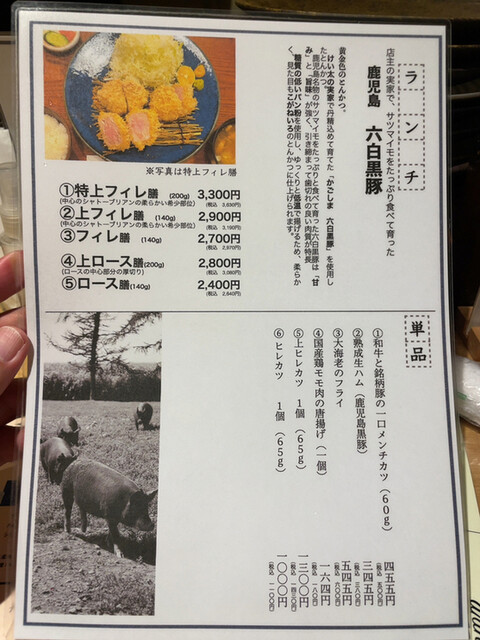 ランチ
店主の実家で、サツマイモをたっぷり食べて育った
鹿児島 六白黒豚
黄金色のとんかつ。
けい太の実家で丹精込めて育てた「かごしま 六白黒豚」を使用し
たとんかつ。
鹿児島名物のサツマイモをたっぷりと食べて育った六白黒豚は「甘
み」と「旨味」が強く、引き締まって歯切れの良い肉質が特長
糖質の低いパン粉を使用し、ゆっくりと低温で揚げるため、柔らか
く、見た目もこがねいろのとんかつに仕上げられます。
※写真は特上フィレ膳
①特上フィレ膳 (200g) 3,300円
(中心のシャトーブリアンの柔らかい希少部位) (税込 3,630円)
②上フィレ膳 (140g) 2,900円
(中心のシャトーブリアンの柔らかい希少部位) (税込 3,190円)
③フィレ膳 (140g) 2,700円
(税込 2,970円)
④上ロース膳(200g) 2,800円
(ロースの中心部分の厚切り) (税込 3,080円)
⑤ロース膳(140g) 2,400円
(税込 2,640円)
単品
①和牛と銘柄豚の一口メンチカツ(60g) 四五五円
(税込 五〇〇円)
②熟成生ハム(鹿児島黒豚) 三四五円
(税込 三八〇円)
③大海老のフライ 五四五円
(税込 六〇〇円)
④国産鶏モモ肉の唐揚げ(一個) 一六四円
(税込 一八〇円)
⑤上ヒレカツ 1個(65g) 一三〇〇円
(税込 一四三〇円)
⑥ヒレカツ 1個(65g) 一〇〇〇円
(税込 一一〇〇円)